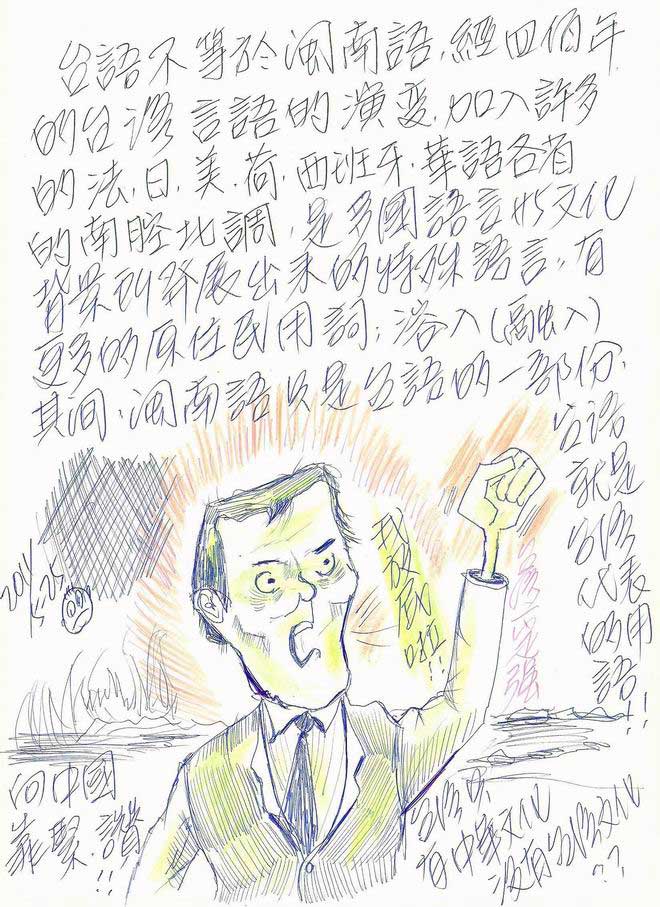 台語不等於閩南語,經四佰年
的台湾言語的演变,加入許多
的法,日,美,荷,西班牙,華語各省
的南腔北調,是多國語言性文化
背景所發展出来的特殊語言,有
更多的原住民用詞,溶入(融入)
其间,閩南語只是台語的一部份.
台语就是台湾代表的用語!!
啦!!
向中國
靠緊.讚!!
台湾只
有中華文化
没有台湾文化??